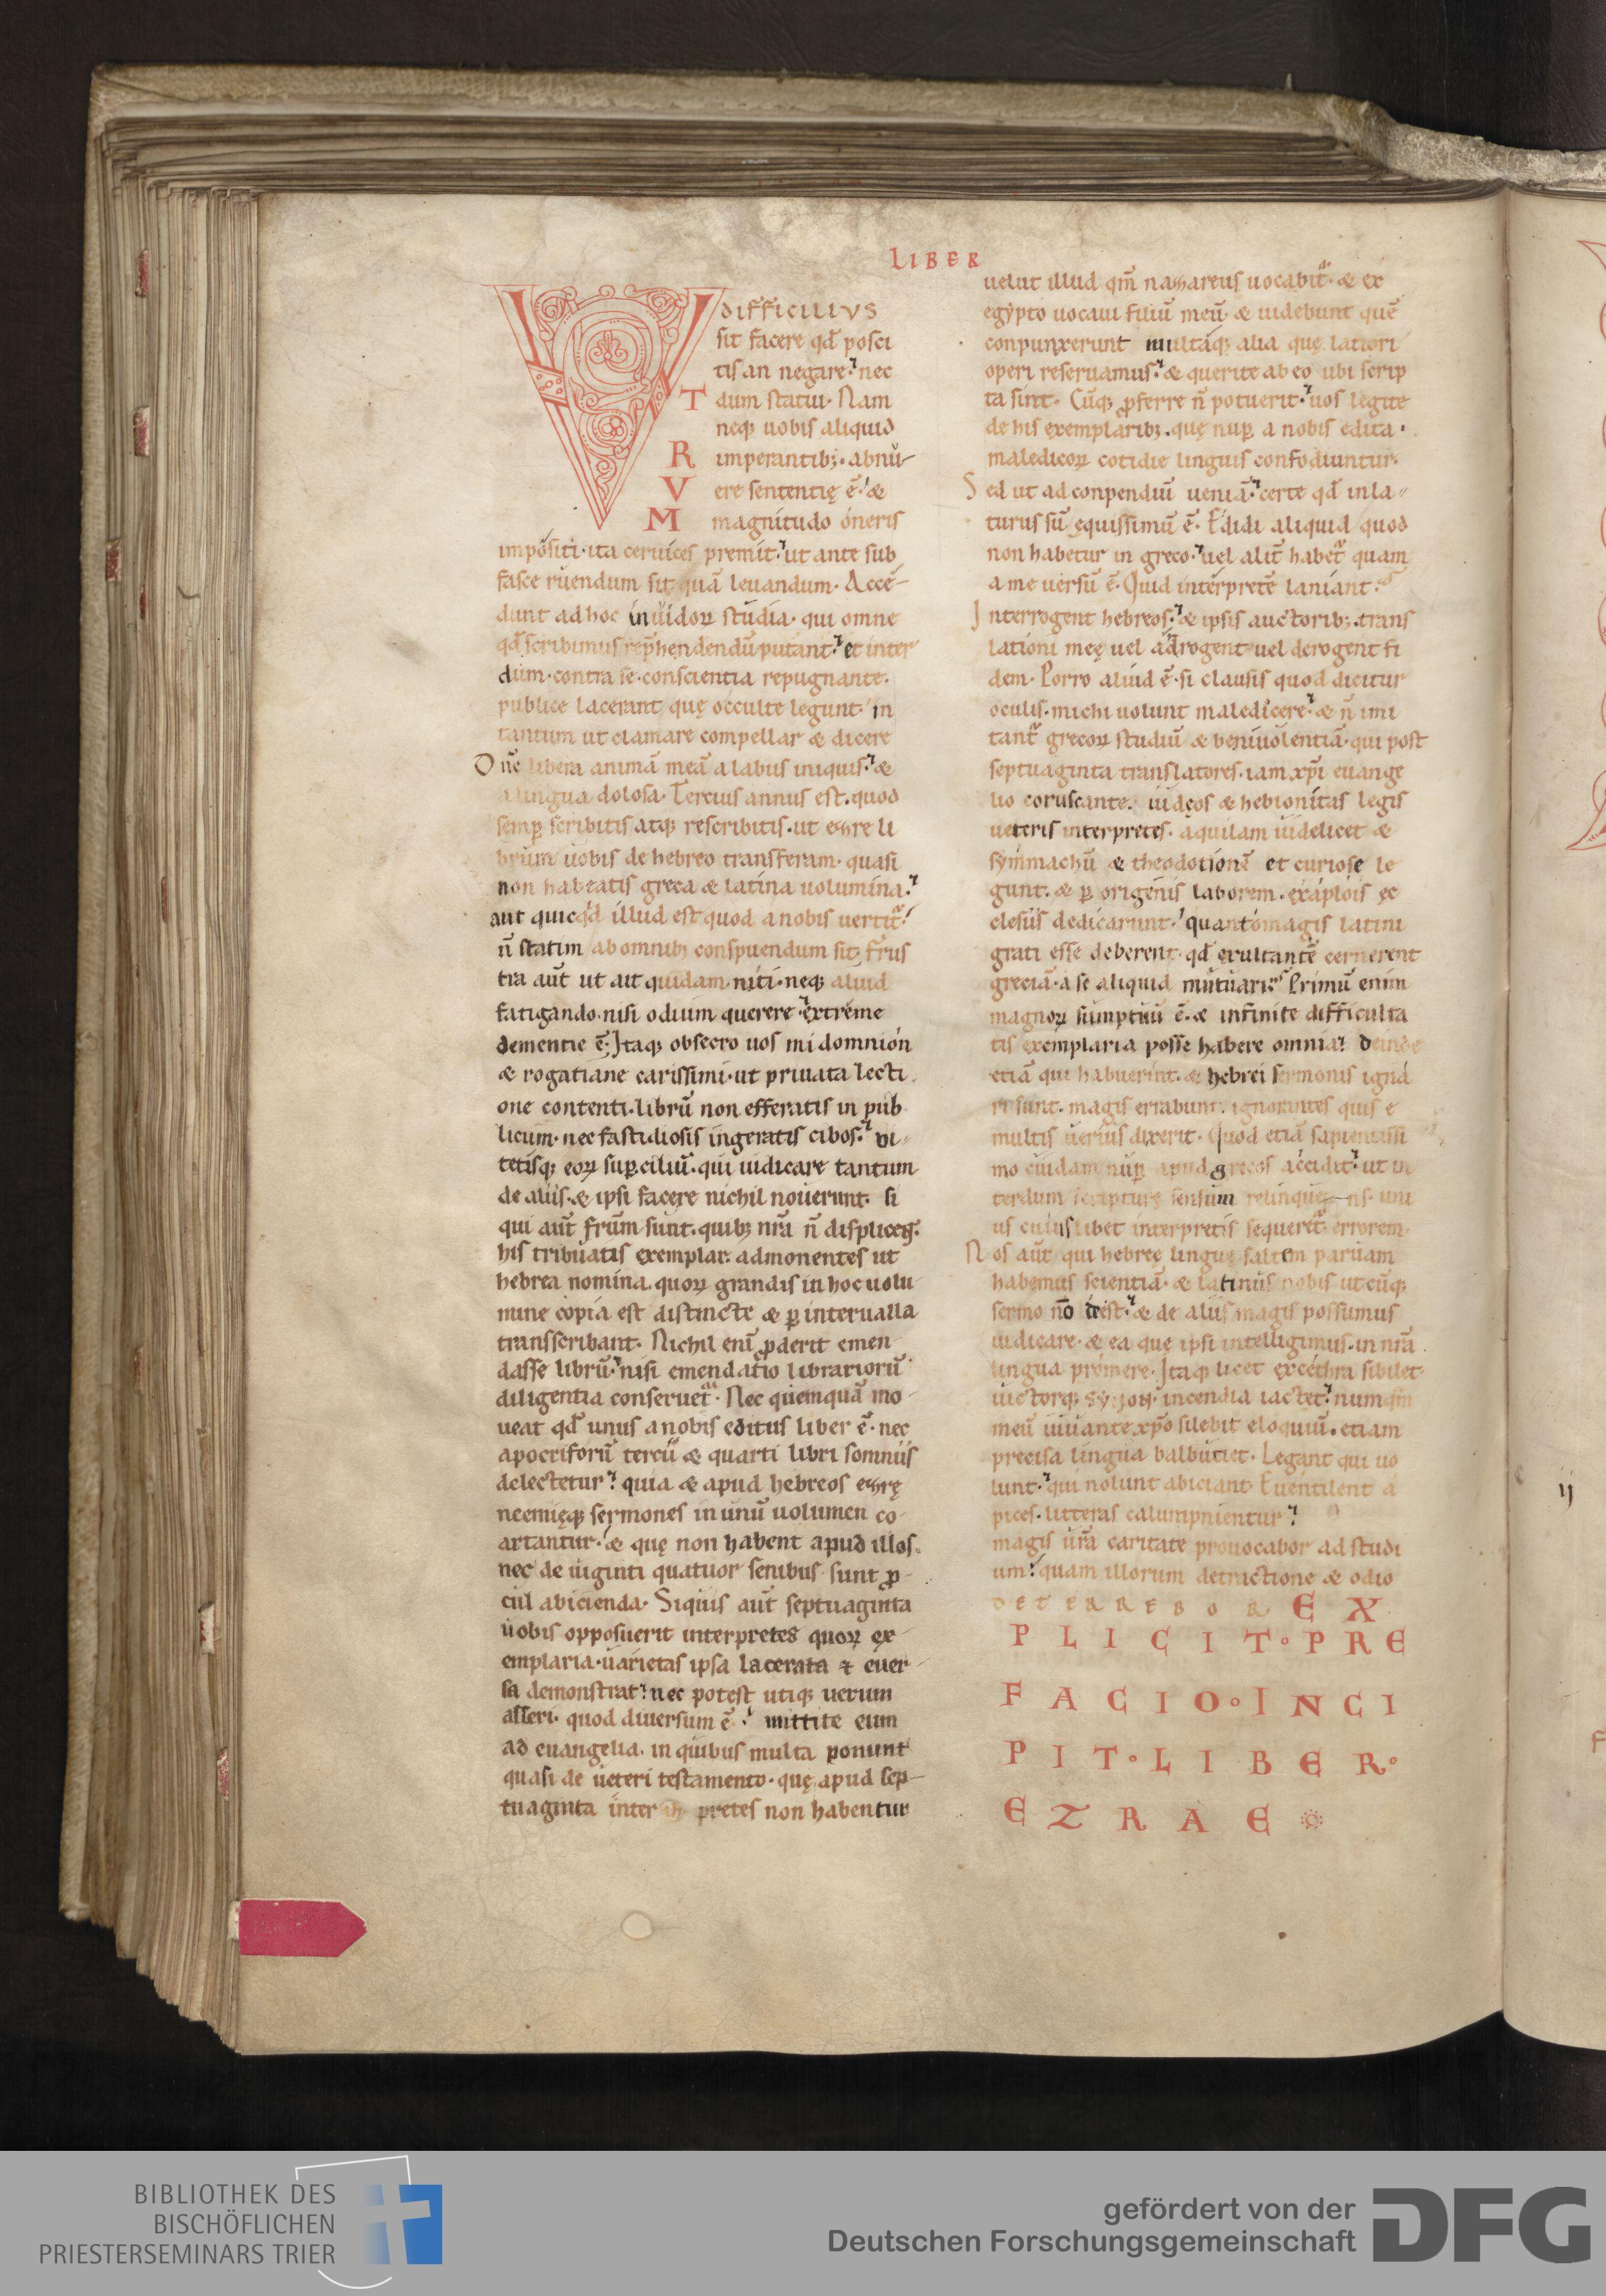 LIBER
VTRVM difficilius
sit facere qd̄ posci
tis an negare. nec
dum statui. Nam
neq; uobis aliquid
imperantib;. abnu
ere sententię ē. &
magnitudo oneris
impositi. ita ceruices premit. ut ante sub
fasce ruendum sit quā leuandum. Acce-
dunt ad hoc inuidoꝝ studia. qui omne
qd̄ scribimus rep̄hendendū putant. et inter
dum. contra se. conscientia repugnante.
publice lacerant quę occulte legunt. in
tantum ut clamare compellar & dicere
Dn̄e libera animā meā a labiis iniquis. &
a lingua dolosa. Tercius annus est. quod
semp̱ scribitis atq; rescribitis. ut ezre li
brum uobis de hebreo transferam. quasi
non habeatis greca & latina uolumina.
aut quicqd illud est quod a nobis uertit᷑.
n̄ statim ab omnib; conspuendum sit. Frus
tra aut̄ ut ait quidam. niti. neq; aliud
fatigando. nisi odium querere. extreme
dementie ē. Itaq; obsecro uos mi domnion
& rogatiane carissimi. ut priuata lecti
one contenti. librū non efferatis in pub
licum. nec fastidiosis ingeratis cibos. vi-
tetisq; eoꝝ sup̱ciliū. qui iudicare tantum
de aliis. & ipsi facere nichil nouerunt. si
qui aut̄ frūm sunt. quib; nr̄a n̄ displiceɳ.
his tribuatis exemplar. admonentes ut
hebrea nomina. quoꝝ grandis in hoc uolu
mine copia est distincte & p̱ interualla
transscribant. Nichil eni᷑ ꝓderit emen
dasse librū. nisi emendatio librariorū
diligentia conseruet᷑. Nec quemquā mo
ueat qd̄ unus a nobis editus liber ē. nec
apocriforū tercii & quarti libri somniis
delectetur. quia & apud hebreos ezrę
neemięq; sermones in unū uolumen co
artantur. & quę non habent apud illos.
nec de uiginti quatuor senibus sunt ꝓ
cul abicienda. Siquis aut̄ septuaginta
uobis opposuerit interpretes quoꝝ ex
emplaria. uarietas ipsa lacerata ⁊ euer
sa demonstrat. nec potest utiq; uerum
asseri. quod diuersum ē. mittite eum
ad euangelia. in quibus multa ponunt᷑
quasi de ueteri testamento. quę apud sep-
tuaginta inter pretes non habentur
uelut illud qm̄ nazareus uocabit᷑. & ex
egypto uocaui filiū meū. & uidebunt quē
conpunxerunt multaq; alia quę latiori
operi reseruamus. & querite ab eo ubi scrip
ta sint. Cūq; ꝓferre n̄ potuerit. uos legite
de his exemplarib;. quę nup̱ a nobis edita.
maledicoꝝ cotidie linguis confodiuntur.
Sed ut ad conpendiū ueniā. certe qd̄ inla-
turus sū equissimū ē. Edidi aliquid quod
non habetur in greco. uel alit̄ habet᷑ quam
a me uersū ē. Quid interpretē laniant.
Interrogent hebreos. & ipsis auctorib;. trans
lationi meę uel adrogent uel derogent fi
dem. Porro aliud ē. si clausis quod dicitur
oculis. michi uolunt maledicere. & n̄ imi
tant᷑ grecoꝝ studiū & beniuolentiā. qui post
septuaginta translatores. iam xp̄i euange
lio coruscante. iudęos & hebionitas legis
ueteris interpretes. aquilam uidelicet &
symmachū & theodotionē et curiose le
gunt. & p̱ origenis laborem. exaplois ec
clesiis dedicarunt. quantomagis latini
grati esse deberent. qd̄ exultantē cernerent
greciā. a se aliquid mutuari. Primū enim
magnoꝝ sumptuū ē. & infinite difficulta
tis exemplaria posse habere omnia. deinde
etiā qui habuerint. & hebrei sermonis igna
ri sunt. magis errabunt. ignorantes quis e
multis uerius dixerit. Quod etiā sapientissi
mo cuidam nup̱ apud grecos accidit. ut in
terdum scripturę sensum relinquens. uni
us cuiuslibet interpretis sequeret᷑ errorem.
Nos aut̄ qui hebreę linguę saltem paruam
habemus scientiā. & latinus nobis utcūq;
sermo nō deest. & de aliis magis possumus
iudicare. & ea que ipsi intelligimus. in nr̄a
lingua premere. Itaq; licet excethra sibilet
uictorq; synon. incendia iactet. numqm̄
meū iuuante xp̄o silebit eloquiū. etiam
precisa lingua balbutiet. Legant qui uo
lunt. qui nolunt abiciant. Euentilent a
pices. litteras calumpnientur.
magis ur̄a caritate prouocabor ad studi
um. quam illorum detractione & odio
DETERREBOR EX
PLICIT. PRE
FACIO. INCI
PIT. LIBER.
EZRAE
ij
BIBLIOTHEK DES
BISCHÖFLICHEN
PRIESTERSEMINARS TRIER
gefördert von der
Deutschen Forschungsgemeinschaft
DFG